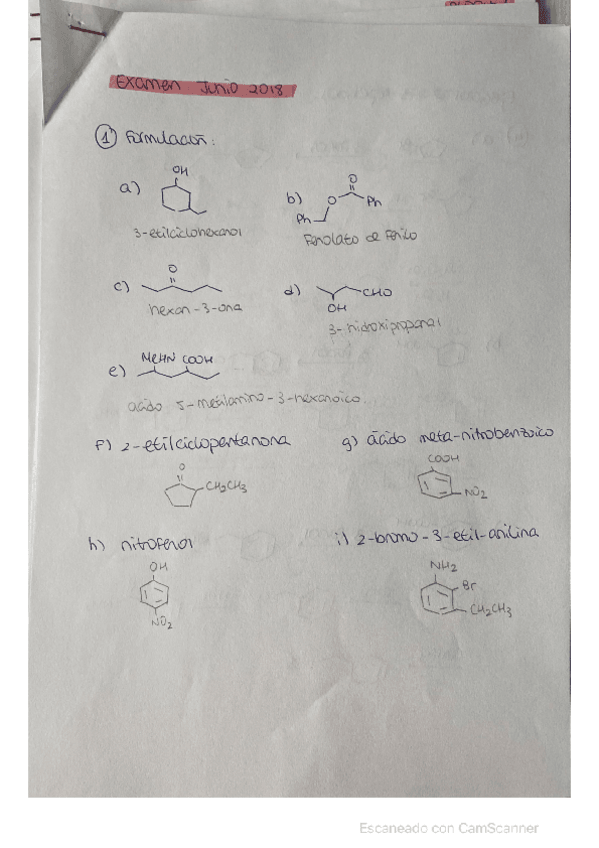 Examen Junio 2018
1 Formulación:
a) OH
3-etilciclohexanol
b) O O Ph
Ph
Fenolato de Fenilo
c) O
hexan-3-ona
d) CHO
OH
3-hidroxipropanal
e) MeHN COOH
ácido 5-metilamino-3-hexanoico
f) 2-etilciclopentanona
O
CH2CH3
g) ácido meta-nitrobenzoico
COOH
NO2
h) nitrofenol
OH
NO2
i) 2-bromo-3-etil-anilina
NH2
Br
CH2CH3
Escaneado con CamScanner